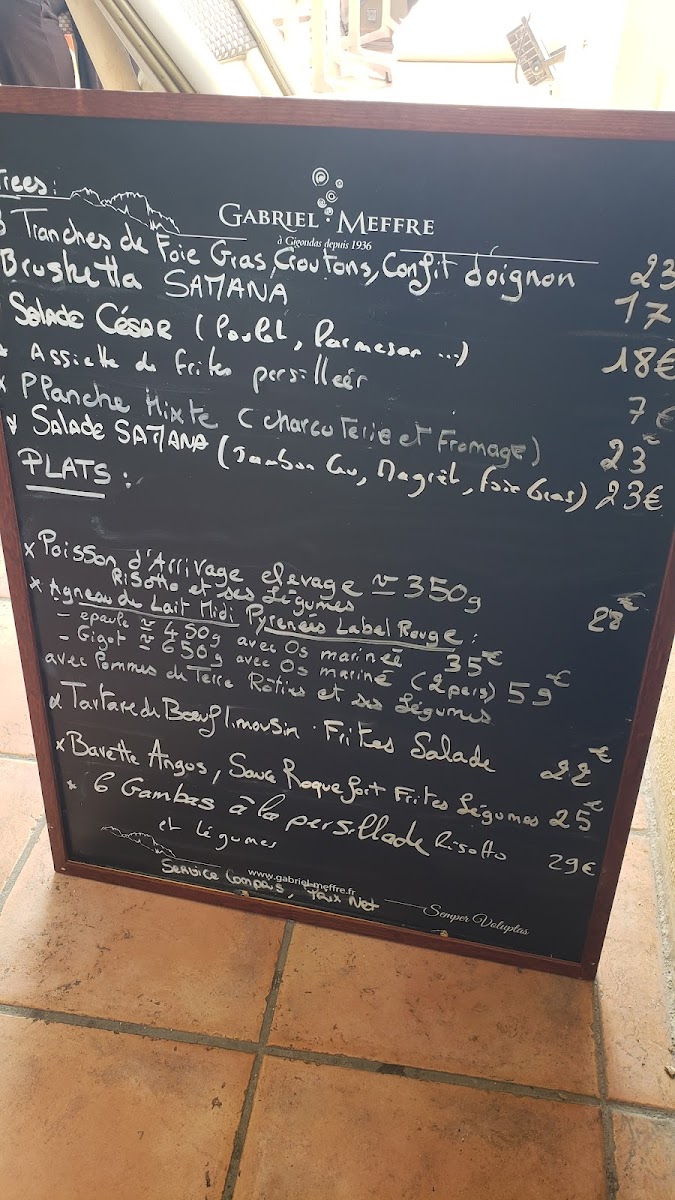 GABRIEL MEFFRE
à Gigondas depuis 1936
rees:
3 Tranches de Foie Gras, Croutons, Confit d'oignon 23
Brusketta SATIANA 17
Salade CÉSAR (Poulet, Parmesan ...) 18€
x Assiette de frites persillées 7€
x PPlanche Mixte (charcuterie et Fromage) 23€
x Salade SATIANA (Jambon Cru, Magret, foie Gras) 23€
PLATS:
x Poisson d'Arrivage elevage ≃ 350g
Risotto et ses Légumes 28€
x Agneau de Lait Midi Pyrenées Label Rouge:
- epaule ≃ 450g avec Os marinée 35€
- Gigot ≃ 650g avec Os mariné (2 pers) 59€
avec Pommes de Terre Rôties et ses Légumes
x Tartare de Bœuf limousin. Frites Salade 22€
x Bavette Angus, Sauce Roquefort Frites Légumes 25€
x 6 Gambas à la persillade Risotto 29€
et légumes
www.gabriel-meffre.fr
Service Compris, Prix Net
Semper Voluptas